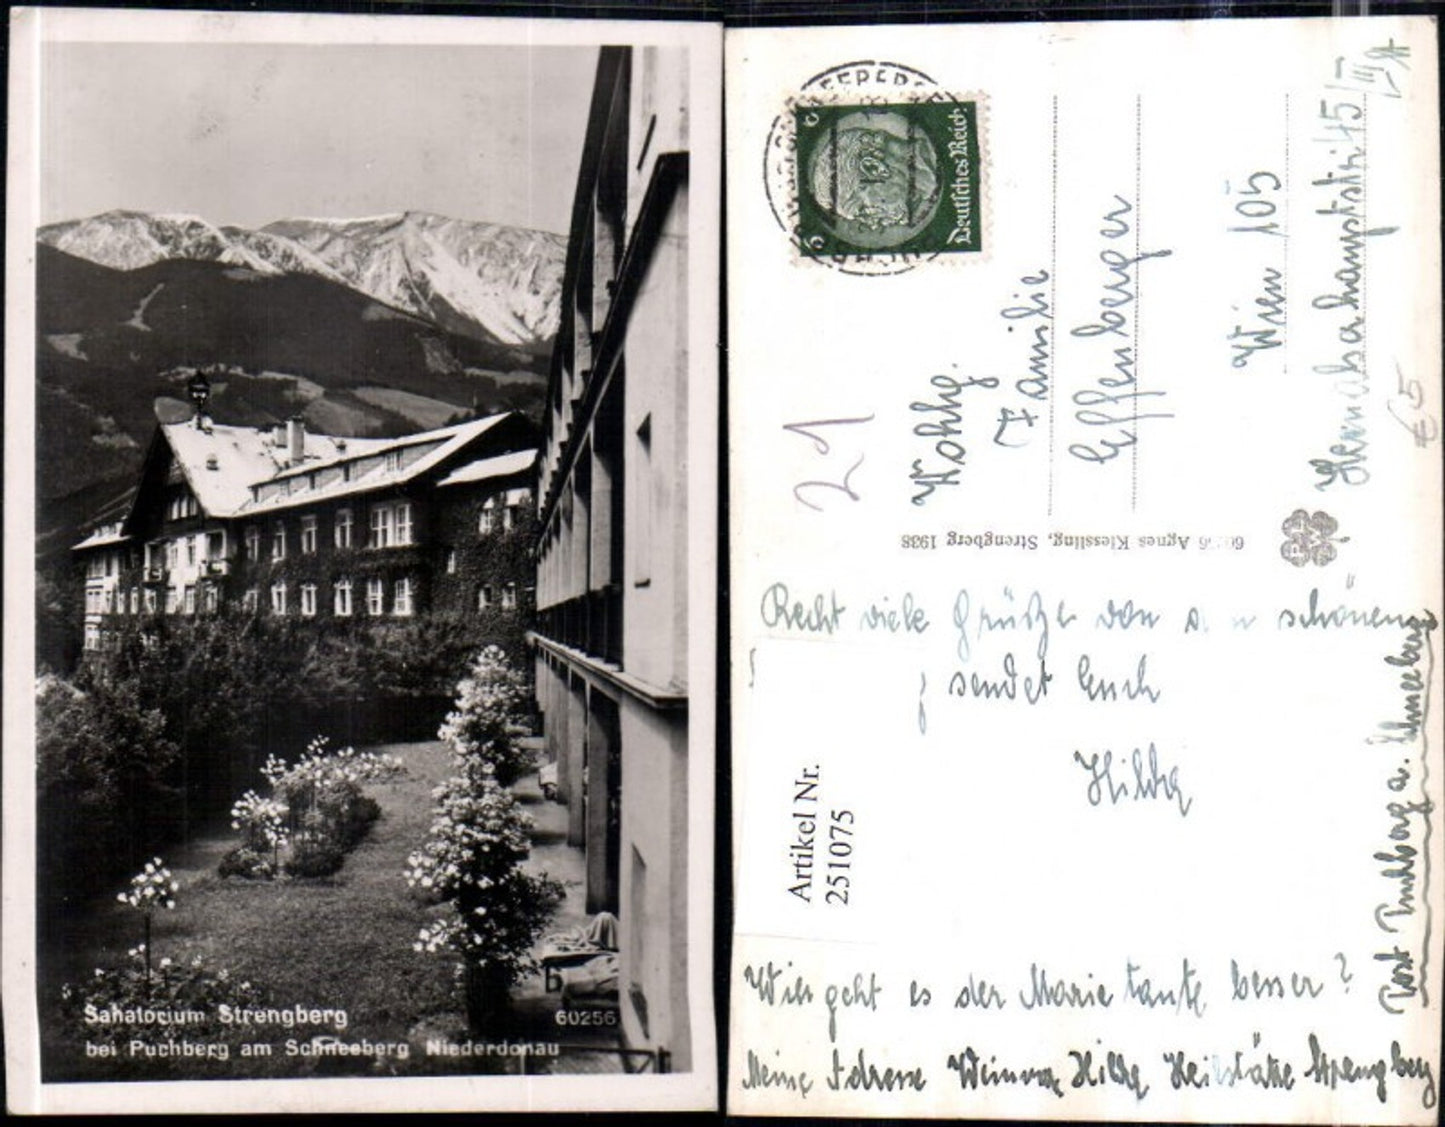 Sanatorium Strengberg
60256
bei Puchberg am Schneeberg Niederdonau
Deutsches Reich
21
Wohlg.
Familie
Effenberger
Wien 105
Hernalserhauptstr. 45/
III
€ 5
Agnes Kiessling, Strengberg 1938
Recht viele Grüße von schönen
sendet Euch
Hilda
Artikel Nr.
251075
Wie geht es der Marie tante besser?
Meine Adresse Hilda Heilstätte Strengberg
Post Puchberg a. Schneeberg